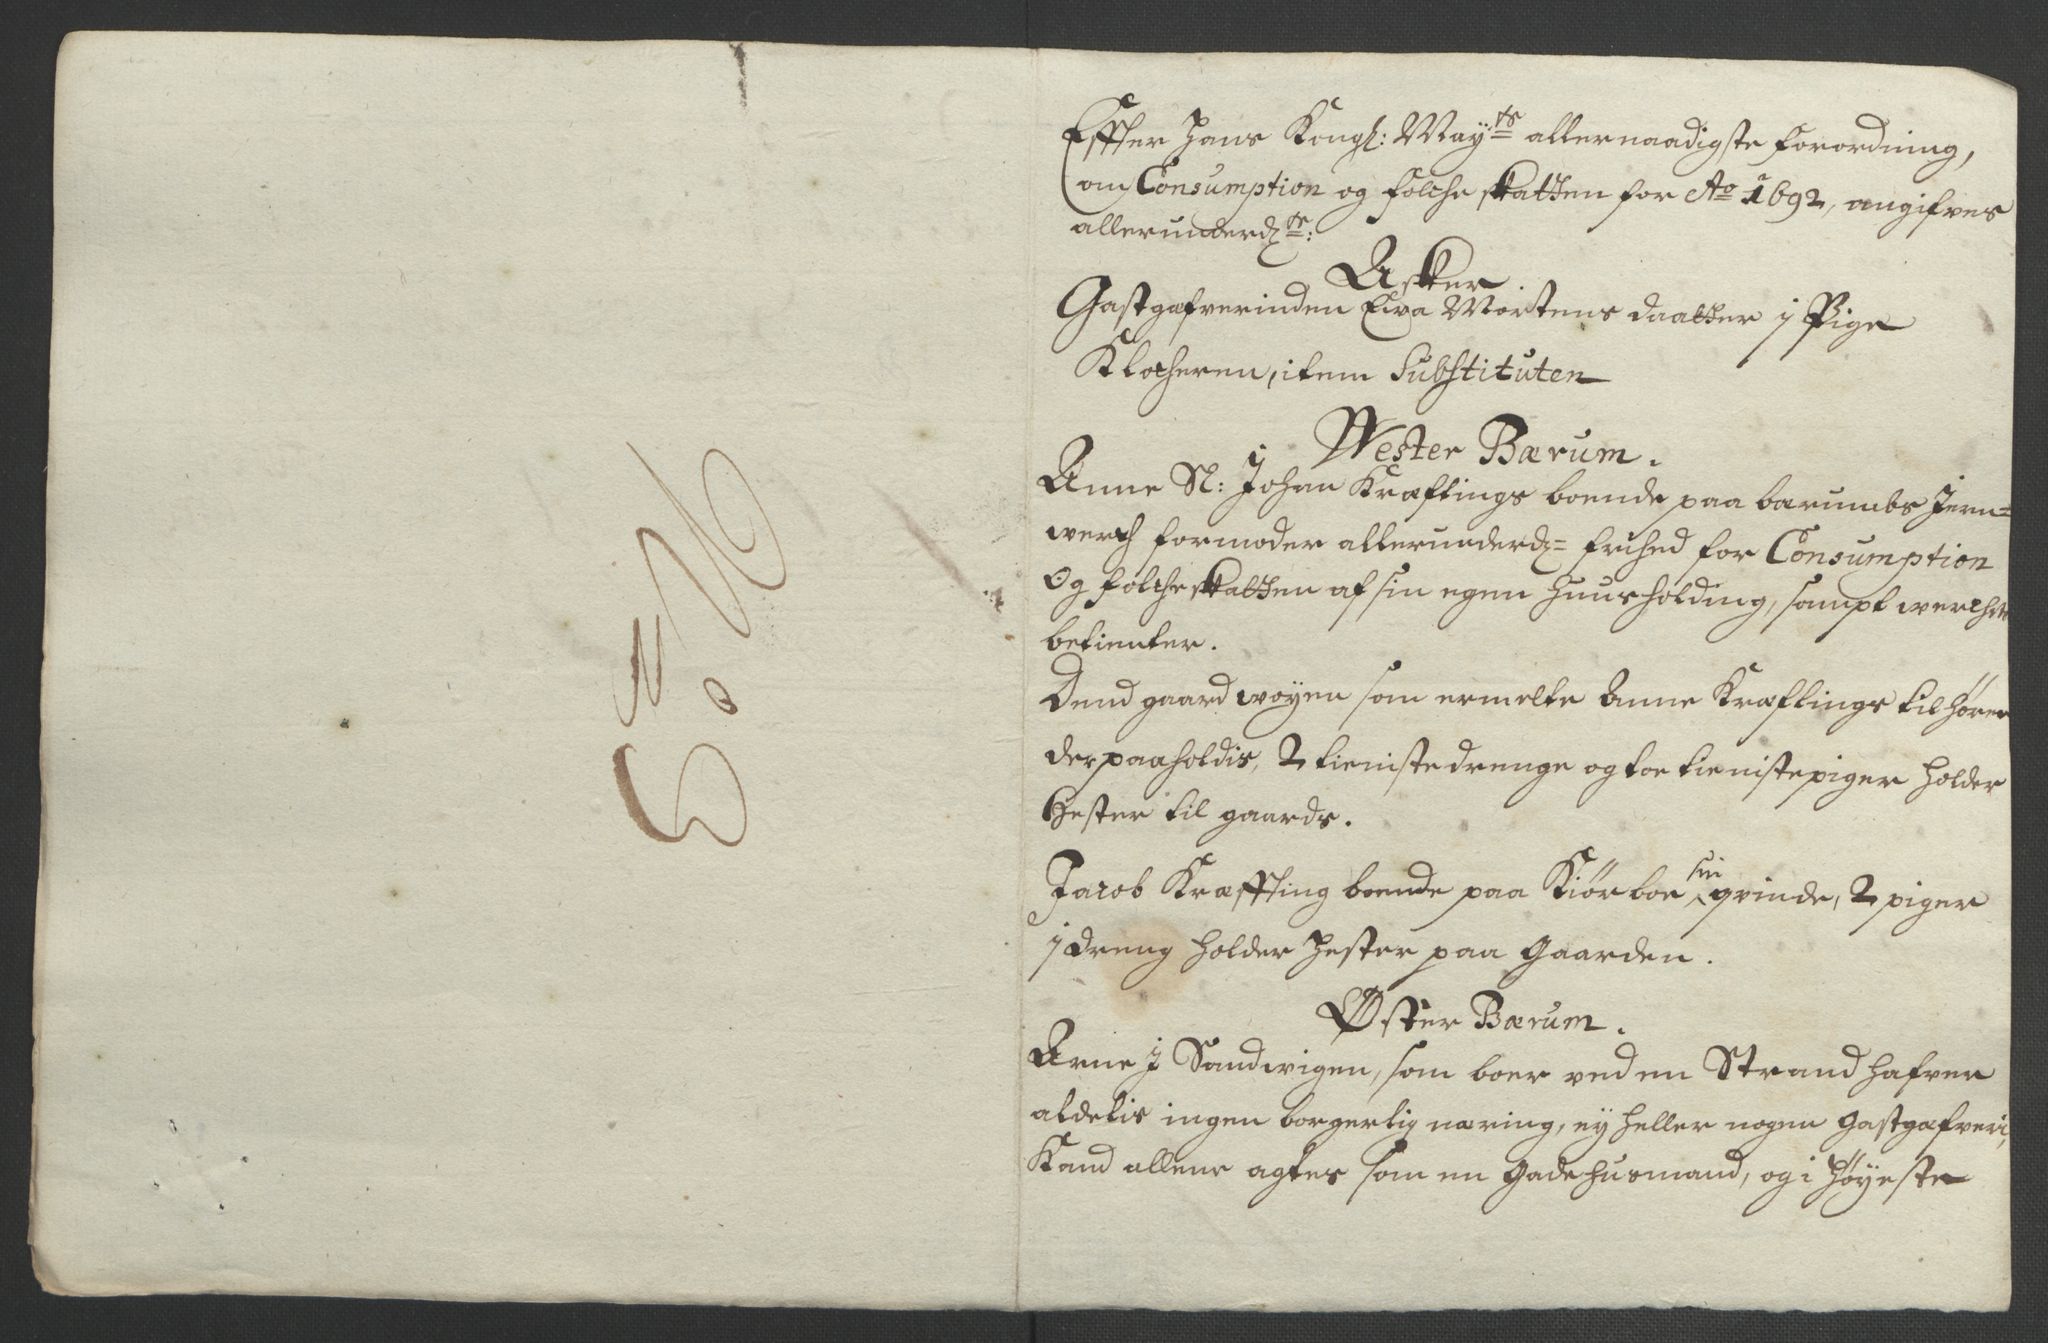 Effter Hans Kongl: May:ts allernaadigste forordning,
om Consumption og folcheskatten for Ao 1692, angifves
allerunderd:te:
Asker.
Gastgafverinden Eva Mortens daatter j Pige
Klocheren, item Substituten
Wester Bærum.
Anne Sl: Johan Kræftings boende paa bærumbs Jern=
werch formoder allerunderd:= frihed for Consumption
Og folcheskatten af sin egen Huusholding, sampt werchets
betienter.
Dend gaard woyen som ermelte Anne Kræftings tilhører
der paaholdis, 2 tienistedrenge og toe tienistepiger holder
Hester til gaards.
Jacob Kræffting boende paa Kiørboe sin qvinde, 2 piger
j dreng holder Hester paa Gaarden.
Øster Bærum.
Arne J Sandwigen, som boer ved en Strand hafver
aldelis ingen borgerlig næring, ey heller nogen Gastgafveri,
Kand allene agtes som en Gadehusmand, og i Høyeste